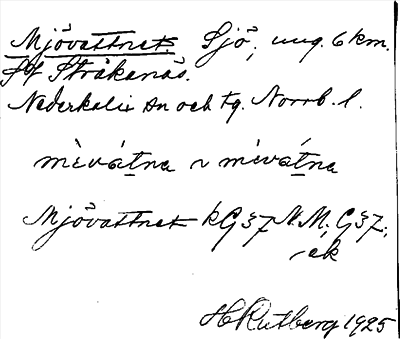 Mjövattnet Sjö, ung. 6 km.
SV Stråkanäs.
Nederkalix sn och tg. Norrb. l.
mèvátna ~ mèvátna
Mjövattnet kG37 N.M; G37;
-ek
H Rutberg 1925